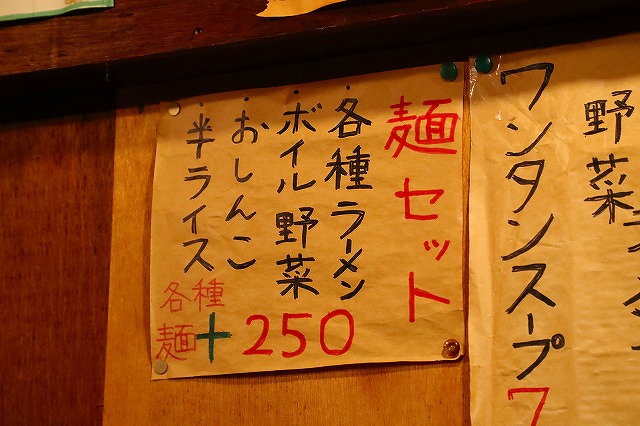 麺セット
・各種ラーメン
・ボイル野菜
・おしんこ
・半ライス
各種
麺+250
野菜
ワンタンスープ7